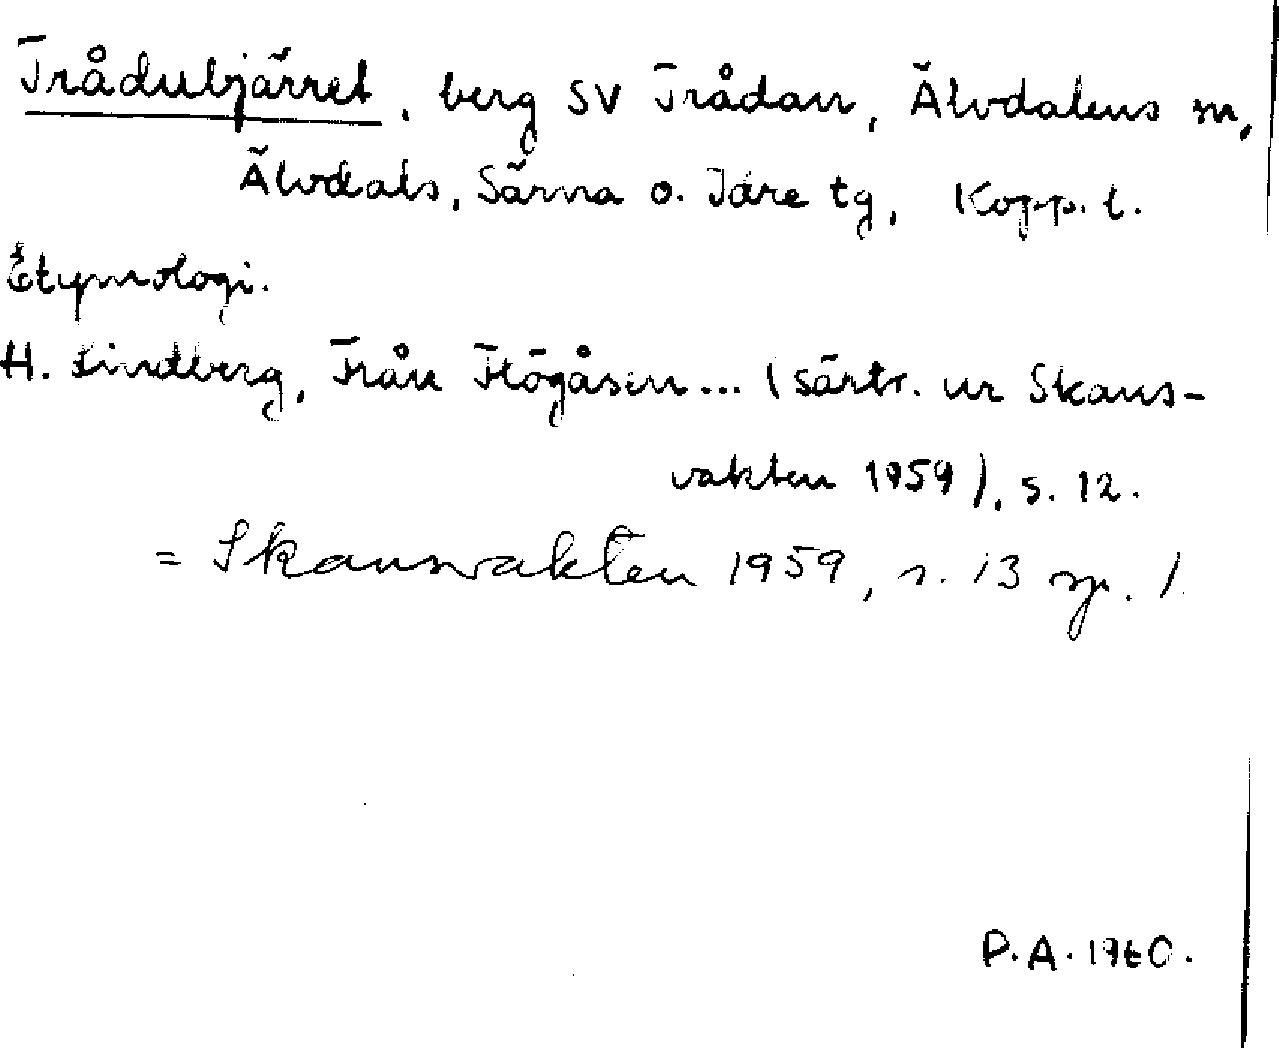 Trådubjärret, berg SV Trådan, Älvdalens sn,
Älvdals, Särna o. Idre tg, Kopp. l.
Etymologi.
H. Lindberg, Från Flögåsen... (särtr. ur Skans-
vakten 1959), s. 12.
= Skansvakten 1959, s. 13 sp. 1.
P.A. 1960.